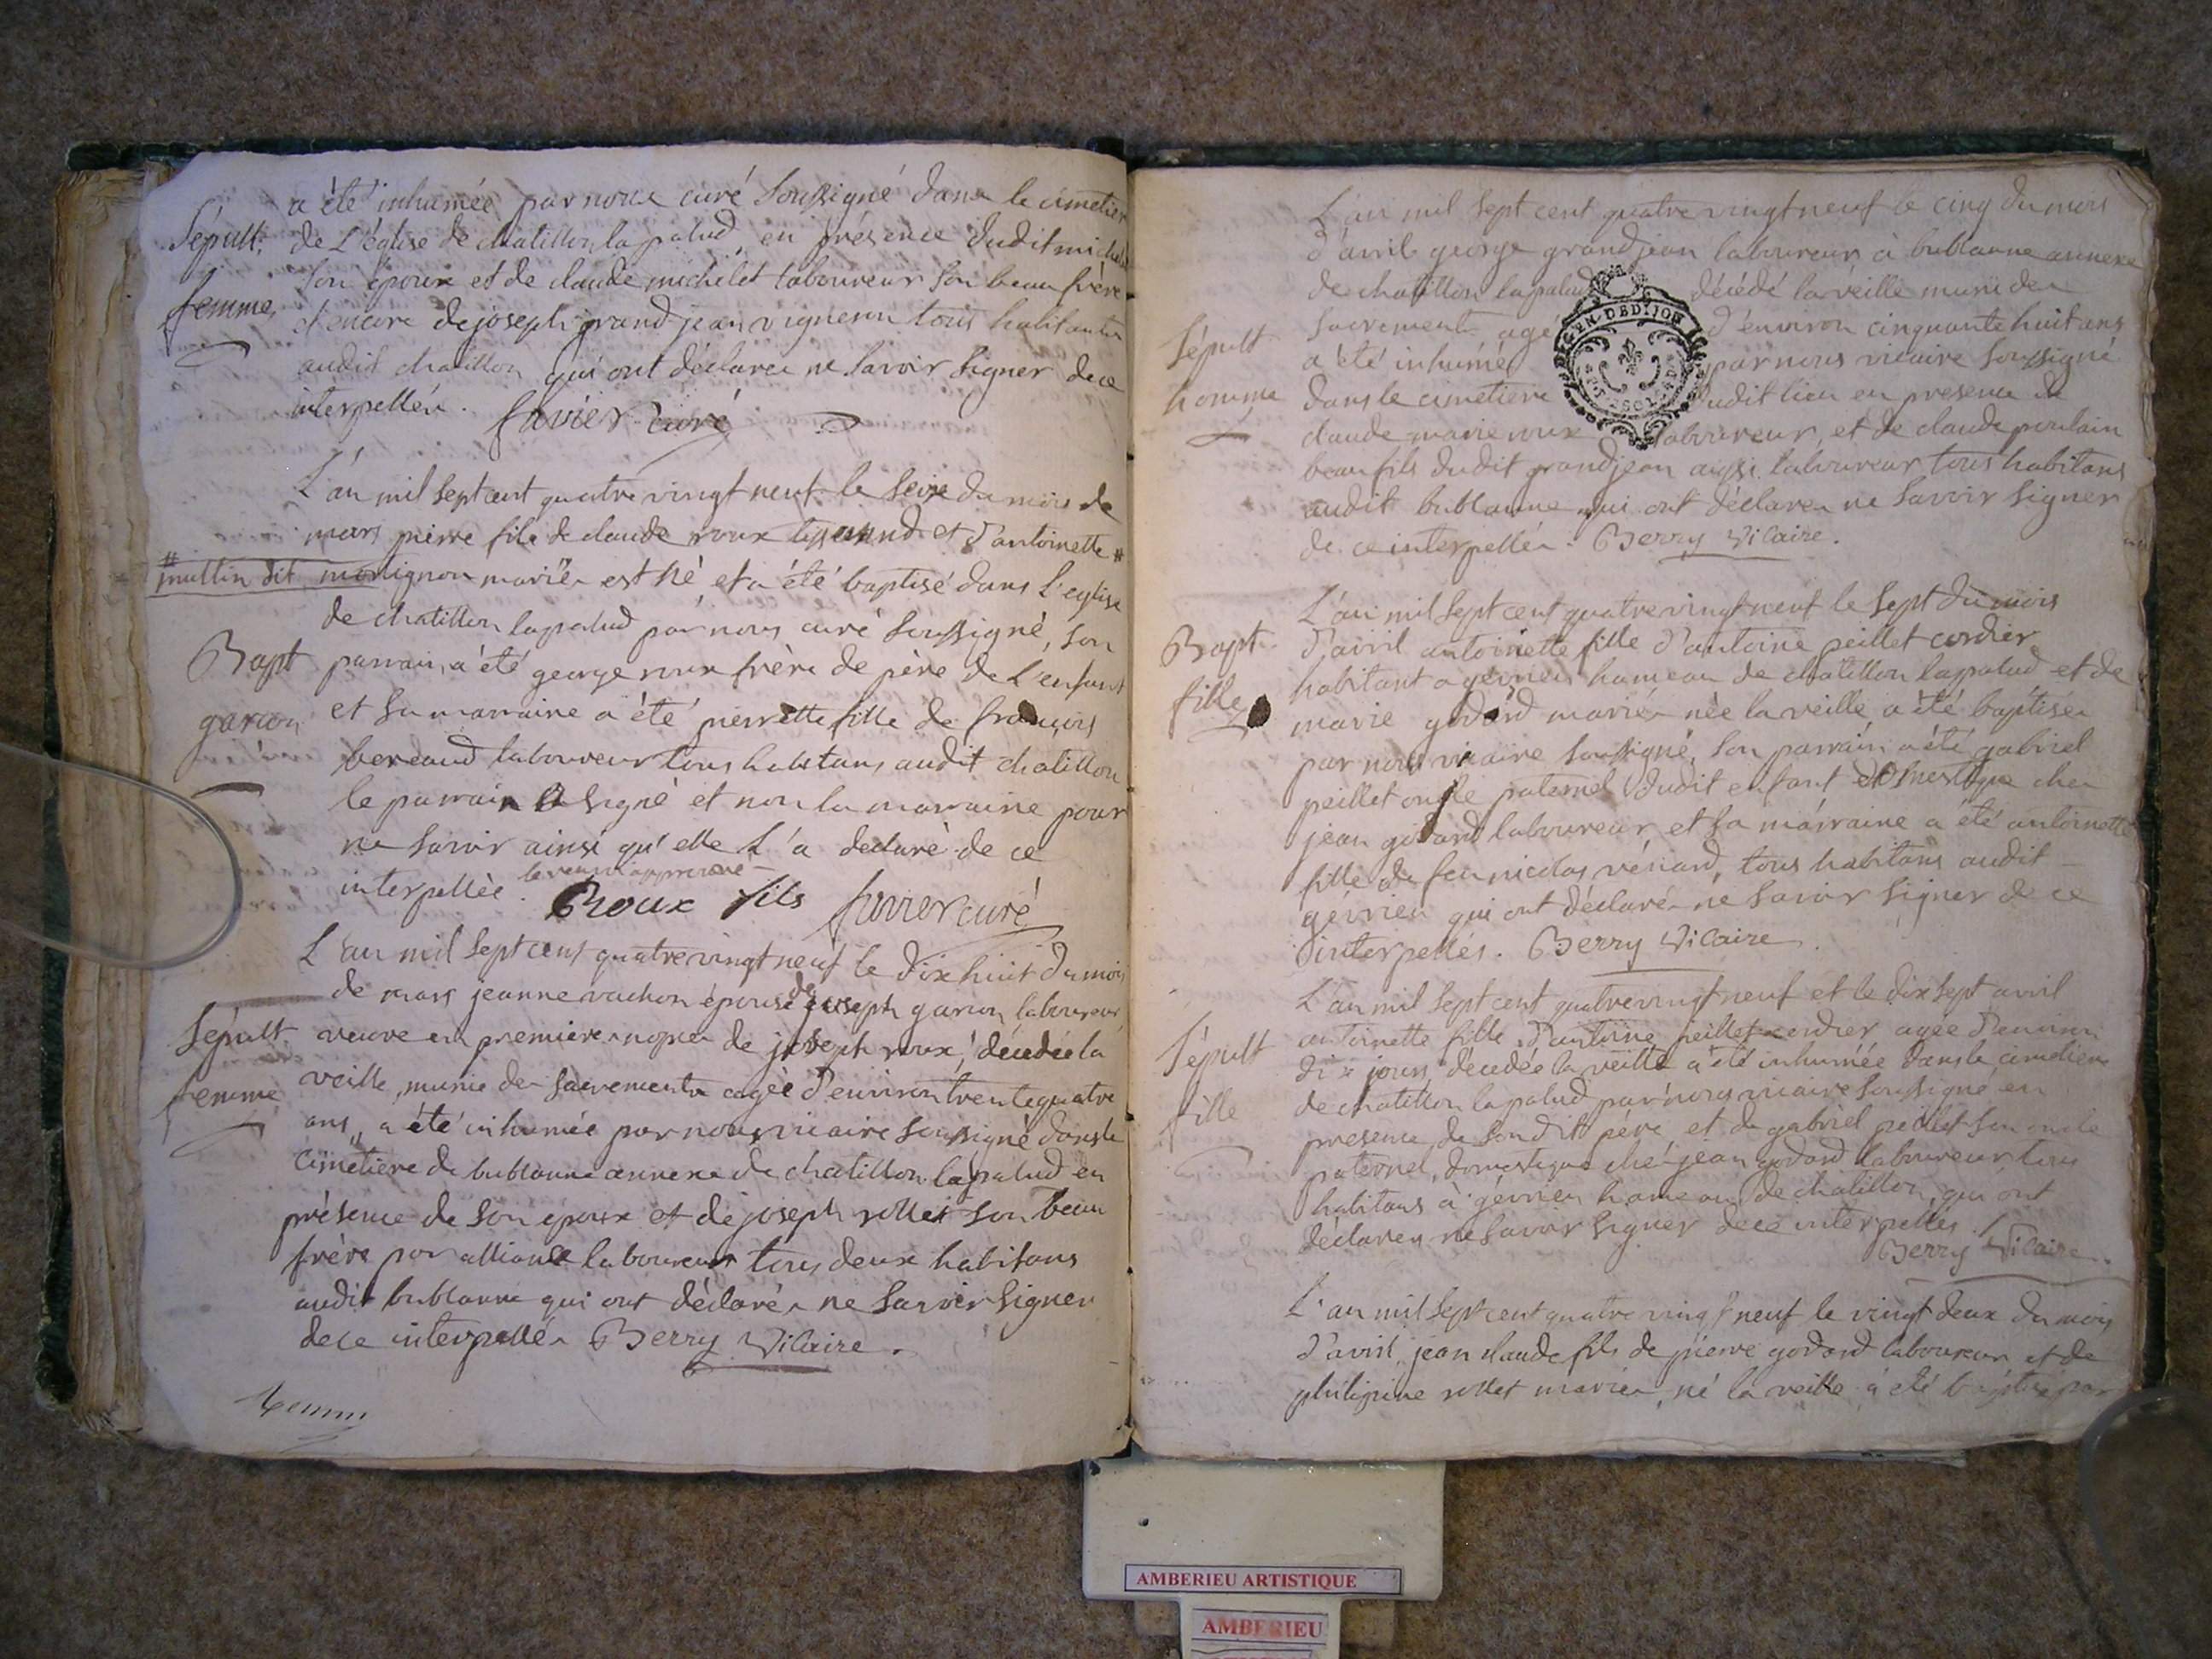 a été inhumée par nous curé soussigné dans le cimetier
Sépult. de L'église de chatillon lapalud, en présence dudit michelet
son epoux et de claude michelet laboureur son beau frère
femme, et encore de joseph grandjean vigneron tous habitants
audit chatillon qui ont déclarés ne savoir signer de ce
interpellés. favier curé
L'an mil sept cent quatre vingt neuf le seize du mois de
mars pierre fils de claude roux et d'antoinette #
# muttin dit mariés est né, et a été baptisé dans l'eglise
de chatillon lapalud par nous curé soussigné, son
Bapt parrain a été george roux frère de père de L'enfant
garcon et sa marraine a été pierrette fille de françois
bereaud laboureur tous habitans audit chatillon
le parrain a signé et non la marraine pour
ne savoir ainsi qu'elle L'a declaré de ce
interpellée. le renvoi approuvé
Roux fils favier curé
L'an mil sept cent quatre vingt neuf le dix huit du mois
de mars jeanne vachon épouse de joseph garion laboureur,
Sépult veuve en premières nopces de joseph roux, décedée la
femme veille, munie des sacrements agée d'environ trente quatre
ans, a été inhumée par nous vicaire soussigné dans le
cimetiere de bublanne annexe de chatillon lapalud en
présence de son epoux et de joseph rollet son beau
frère par alliance laboureur tous deux habitans
audit bublanne qui ont déclarés ne savoir signer
de ce interpellés Berry Vicaire.
L'an mil sept cent quatre vingt neuf le cinq du mois
d'avril george grandjean laboureur à bublanne annexe
de chatillon lapalud décédé la veille muni des
sacrements agé d'environ cinquante huit ans
Sépult a été inhumé par nous vicaire soussigné
homme dans le cimetiere dudit lieu en presence de
claude marie roux laboureur, et de claude poulain
beau fils dudit grandjean aussi laboureur tous habitans
audit bublanne qui ont déclarés ne savoir signer
de ce interpellés. Berry Vicaire.
GEN. DE DIJON
L'an mil sept cent quatre vingt neuf le sept du mois
Bapt. d'avril antoinette fille d'antoine peillet cordier
habitant a gévrieu hameau de chatillon lapalud et de
fille marie godard mariés née la veille, a été baptisée
par nous vicaire soussigné, son parrain a été gabriel
peillet oncle paternel dudit enfant domestique chez
jean godard laboureur et sa marraine a été antoinette
fille de feu nicolas vénard, tous habitans audit
gévrieu qui ont déclarés ne savoir signer de ce
interpellés. Berry Vicaire.
L'an mil sept cent quatre vingt neuf et le dix sept avril
Sépult antoinette fille d'antoine peillet cordier agée d'environ
dix jours, décedée la veille a été inhumée dans le cimetiere
fille de chatillon lapalud par nous vicaire soussigné en
presence de son dit père et de gabriel peillet son oncle
paternel, domestique chés jean godard laboureur tous
habitans à gévrieu hameau de chatillon, qui ont
déclarés ne savoir signer de ce interpellés.
Berry Vicaire.
L'an mil sept cent quatre vingt neuf le vingt deux du mois
d'avril jean claude fils de pierre godard laboureur et de
philipine rollet mariés, né la veille a été baptisé par
AMBERIEU ARTISTIQUE
AMBERIEU